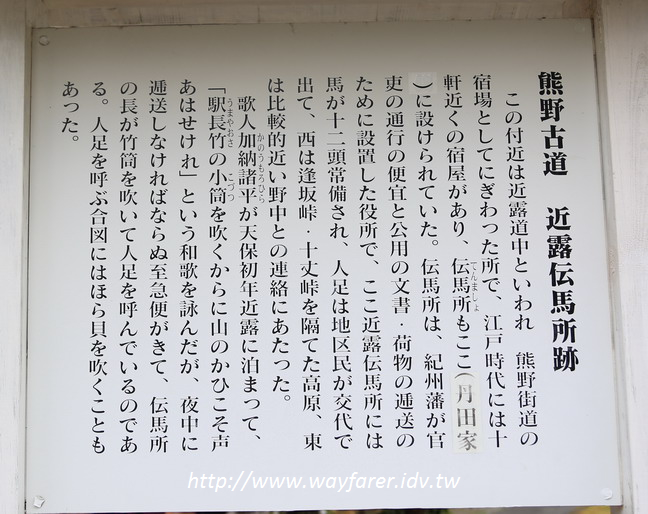 熊野古道 近露伝馬所跡
この付近は近露道中といわれ 熊野街道の
宿場としてにぎわった所で、江戸時代には十
軒近くの宿屋があり、伝馬所もここ(丹田家
)に設けられていた。伝馬所は、紀州藩が官
吏の通行の便宜と公用の文書・荷物の逓送の
ために設置した役所で、ここ近露伝馬所には
馬が十二頭常備され、人足は地区民が交代で
出て、西は逢坂峠・十丈峠を隔てた高原、東
は比較的近い野中との連絡にあたった。
歌人加納諸平が天保初年近露に泊まって、
「駅長竹の小筒を吹くからに山のかひこそ声
あはせけれ」という和歌を詠んだが、夜中に
逓送しなければならぬ至急便がきて、伝馬所
の長が竹筒を吹いて人足を呼んでいるのであ
る。人足を呼ぶ合図にはほら貝を吹くことも
あった。
でんましょ
かのうもろひら
うまやおさ
こづつ
http://www.wayfarer.idv.tw